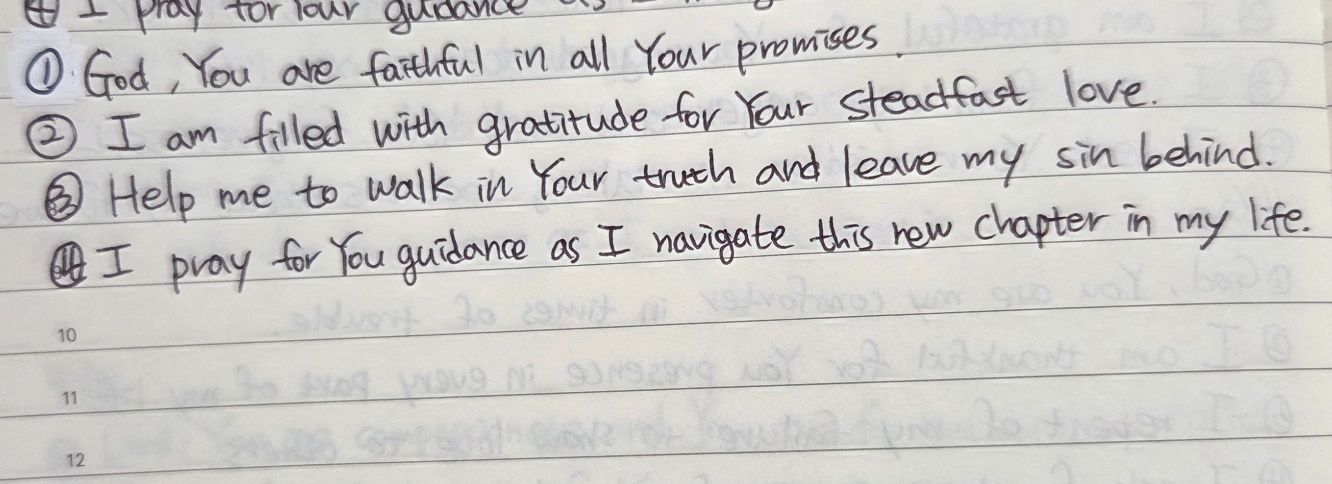 ④ I pray for Your guidance as I
① God, You are faithful in all Your promises.
② I am filled with gratitude for Your steadfast love.
③ Help me to walk in Your truth and leave my sin behind.
④ I pray for You guidance as I navigate this new chapter in my life.
10
11
12